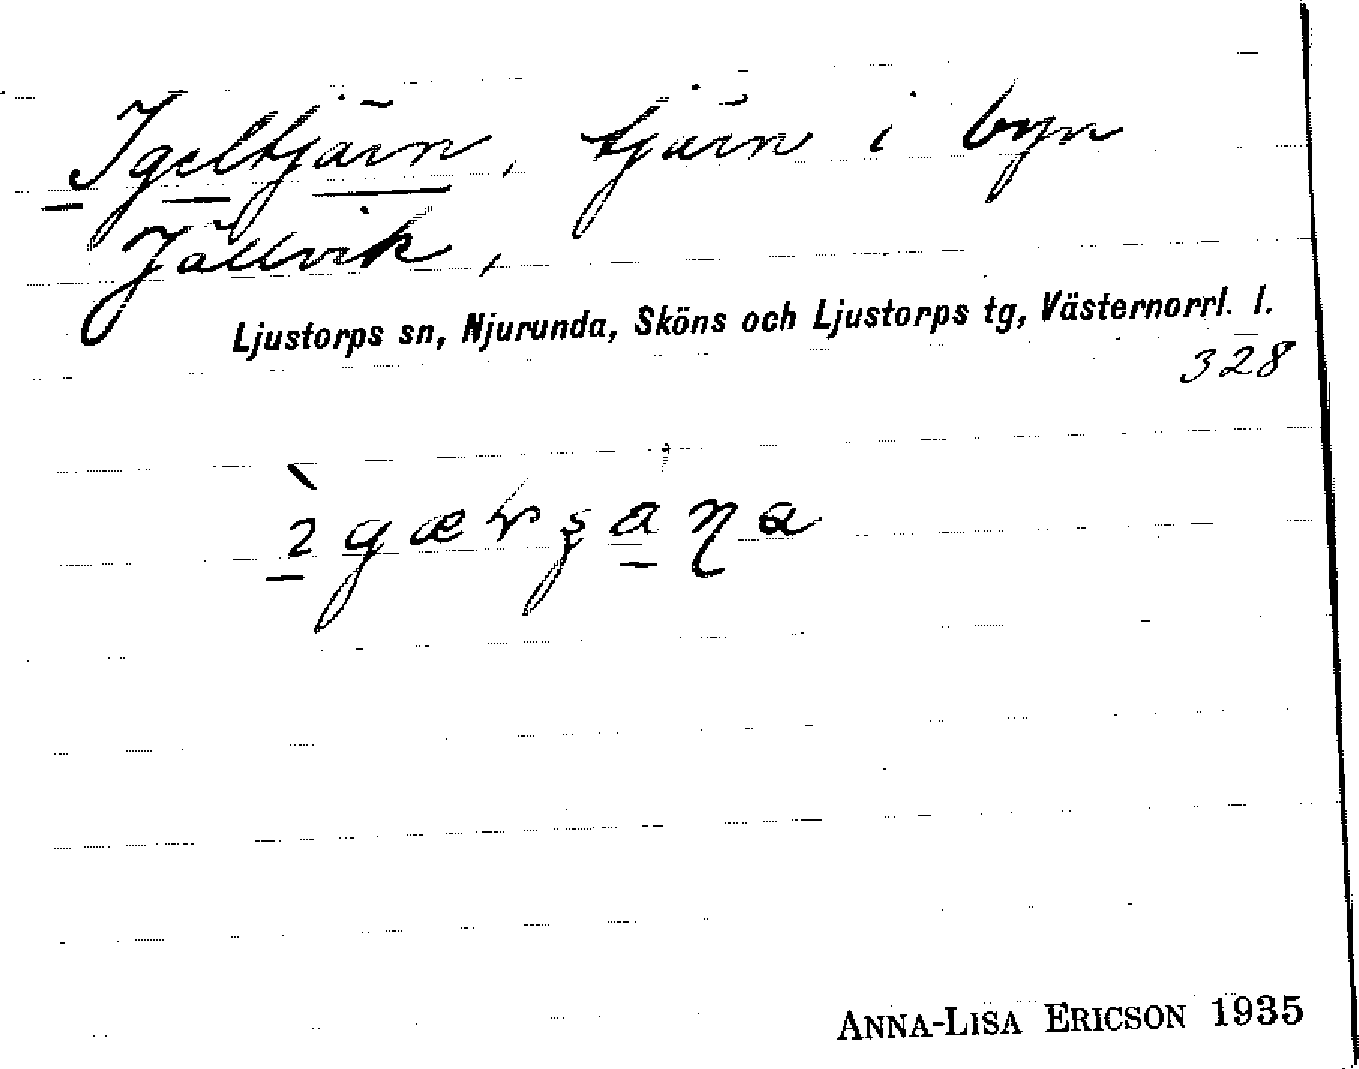 Igeltjärn, tjärn i byn
Jällvik,
Ljustorps sn, Njurunda, Sköns och Ljustorps tg, Västernorrl. l.
328
ANNA-LISA ERICSON 1935